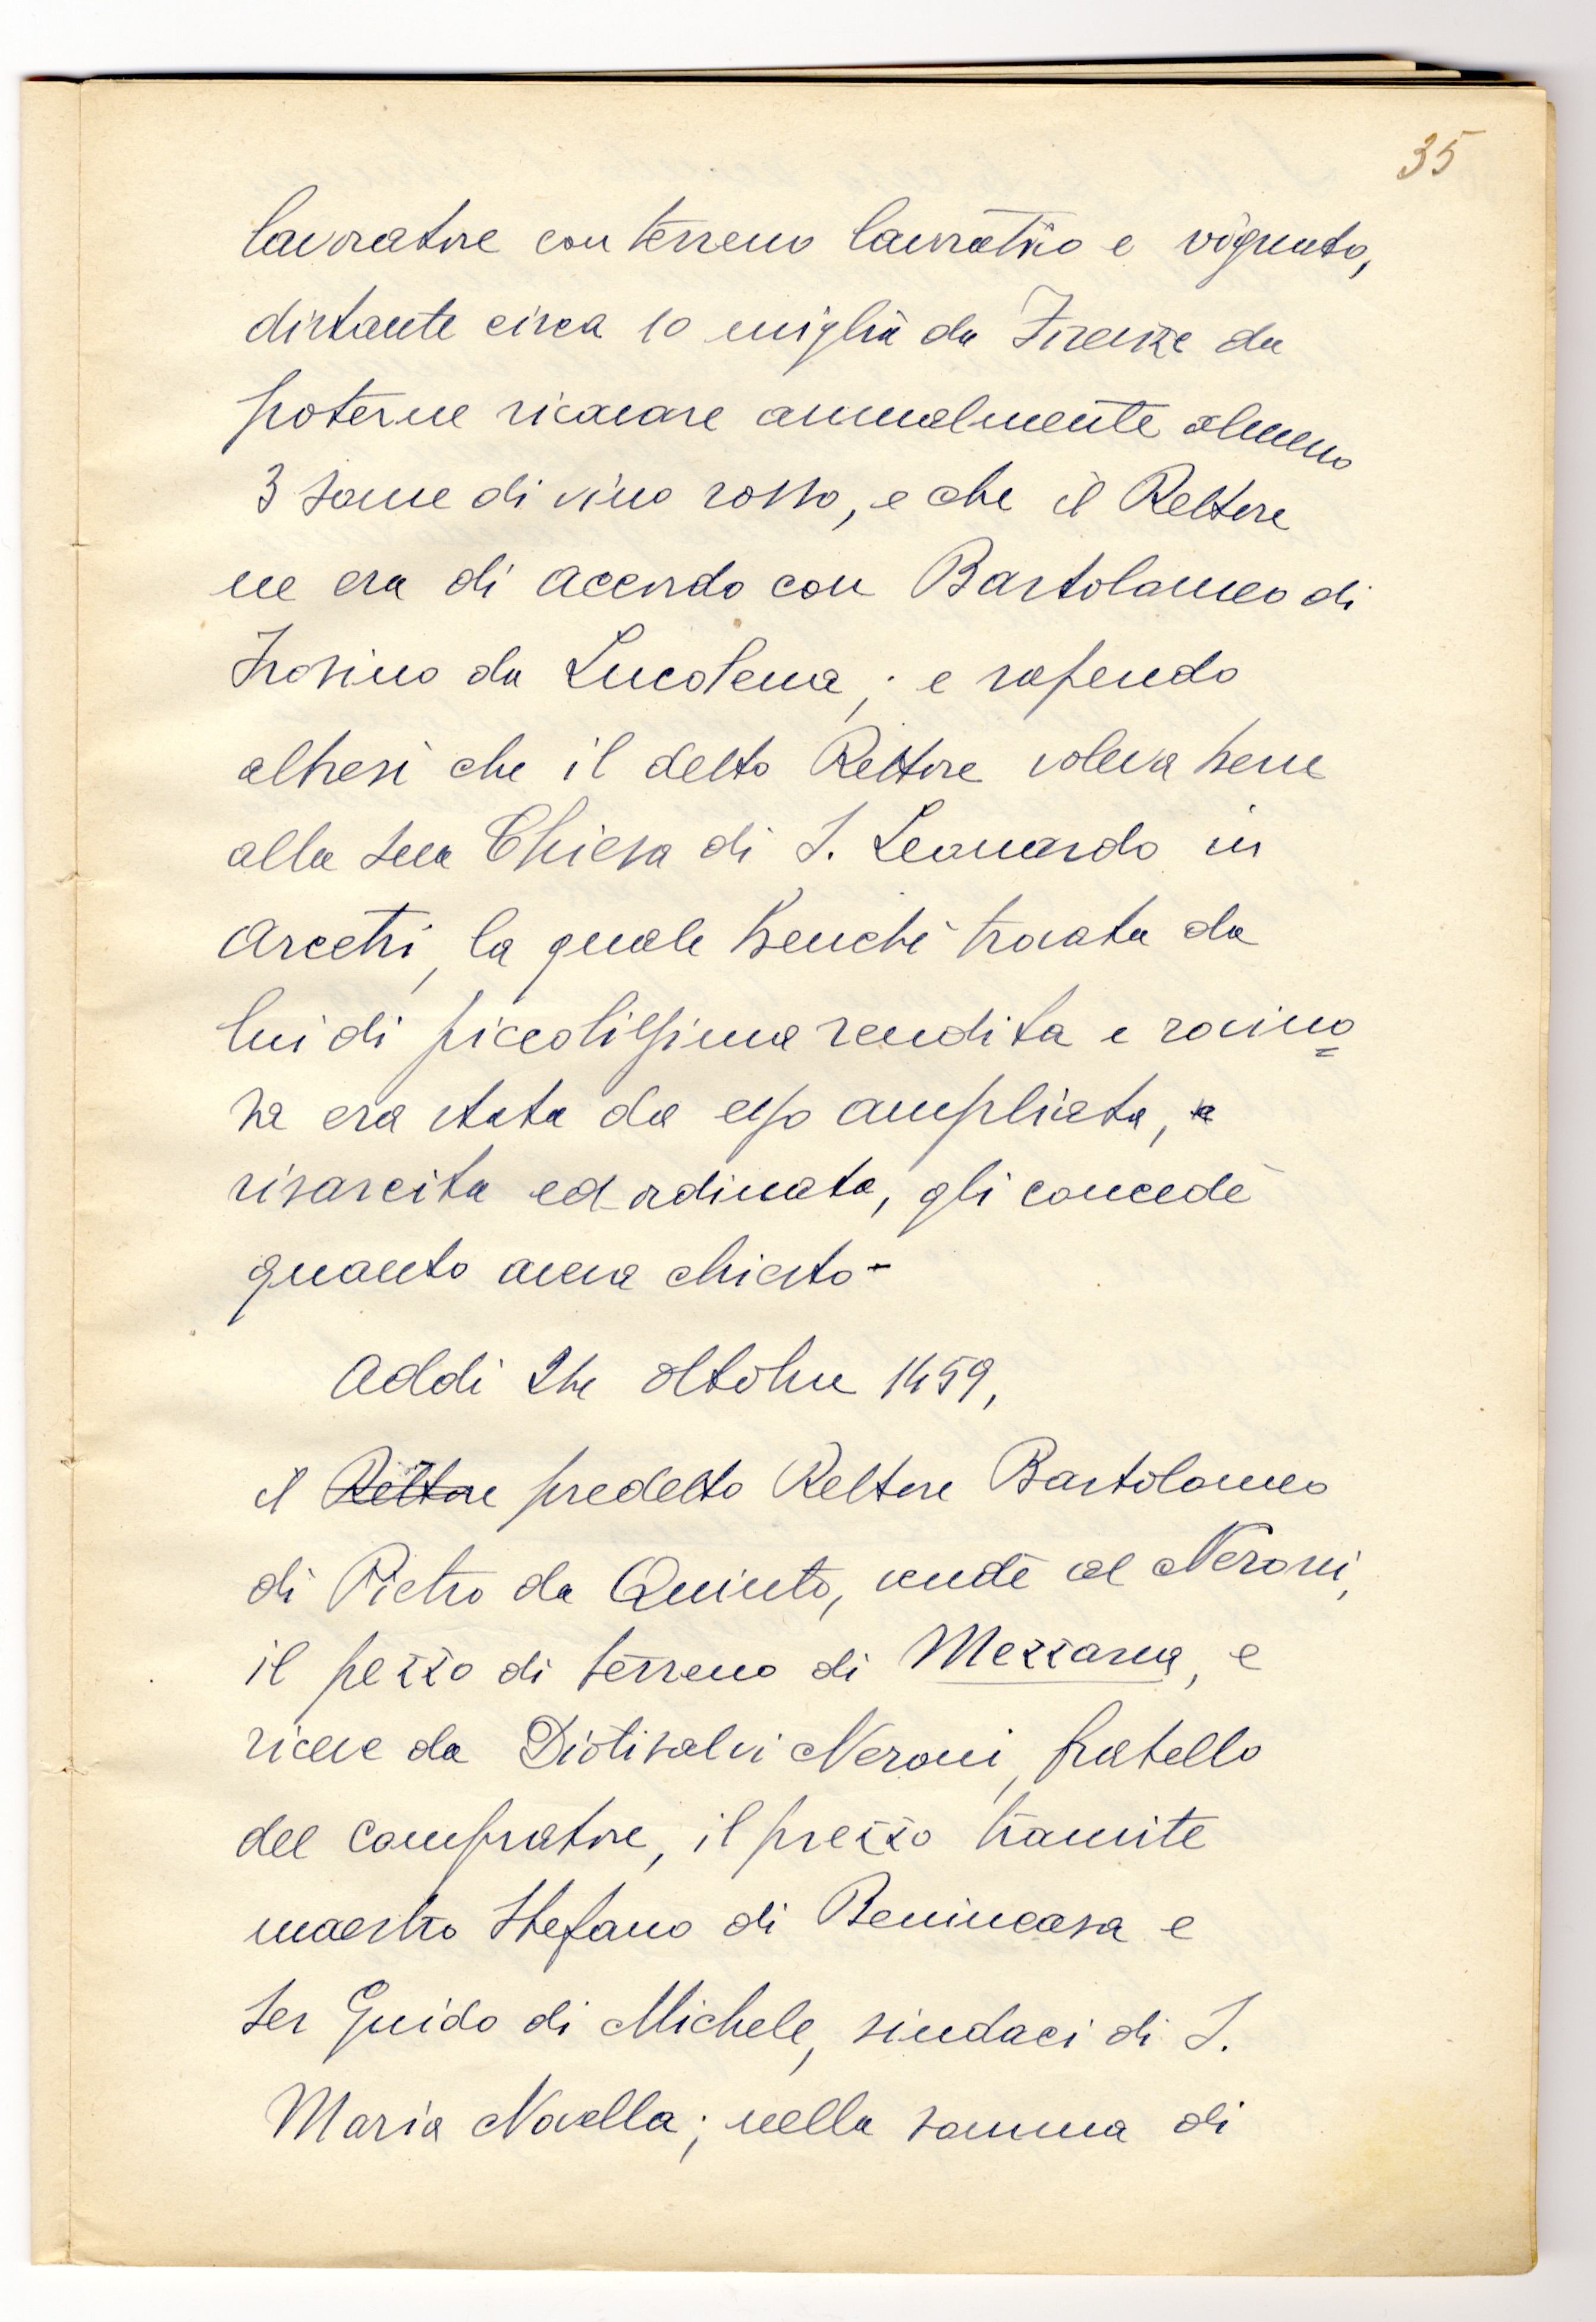 35
lavoratore con terreno lavorativo e vignato,
distante circa 10 miglia da Firenze da
poterne ricavare annualmente almeno
3 some di vino rosso, e che il Rettore
ne era di accordo con Bartolomeo di
Frosino da Lucolena; e sapendo
altresì che il detto Rettore voleva bene
alla sua Chiesa di S. Leonardo in
Arcetri, la quale benchè trovata da
lui di piccolissima rendita e rovino=
sa era stata da esso ampliata,
risarcita ed ordinata, gli concedè
quanto aveva chiesto-
Addì 24 ottobre 1459,
il Rettore predetto Rettore Bartolomeo
di Pietro da Quinto, vende al Neroni,
il pezzo di terreno di Mezzana, e
riceve da Diotisalvi Neroni, fratello
del compratore, il prezzo tramite
maestro Stefano di Benincasa e
Ser Guido di Michele, sindaci di S.
Maria Novella; nella somma di